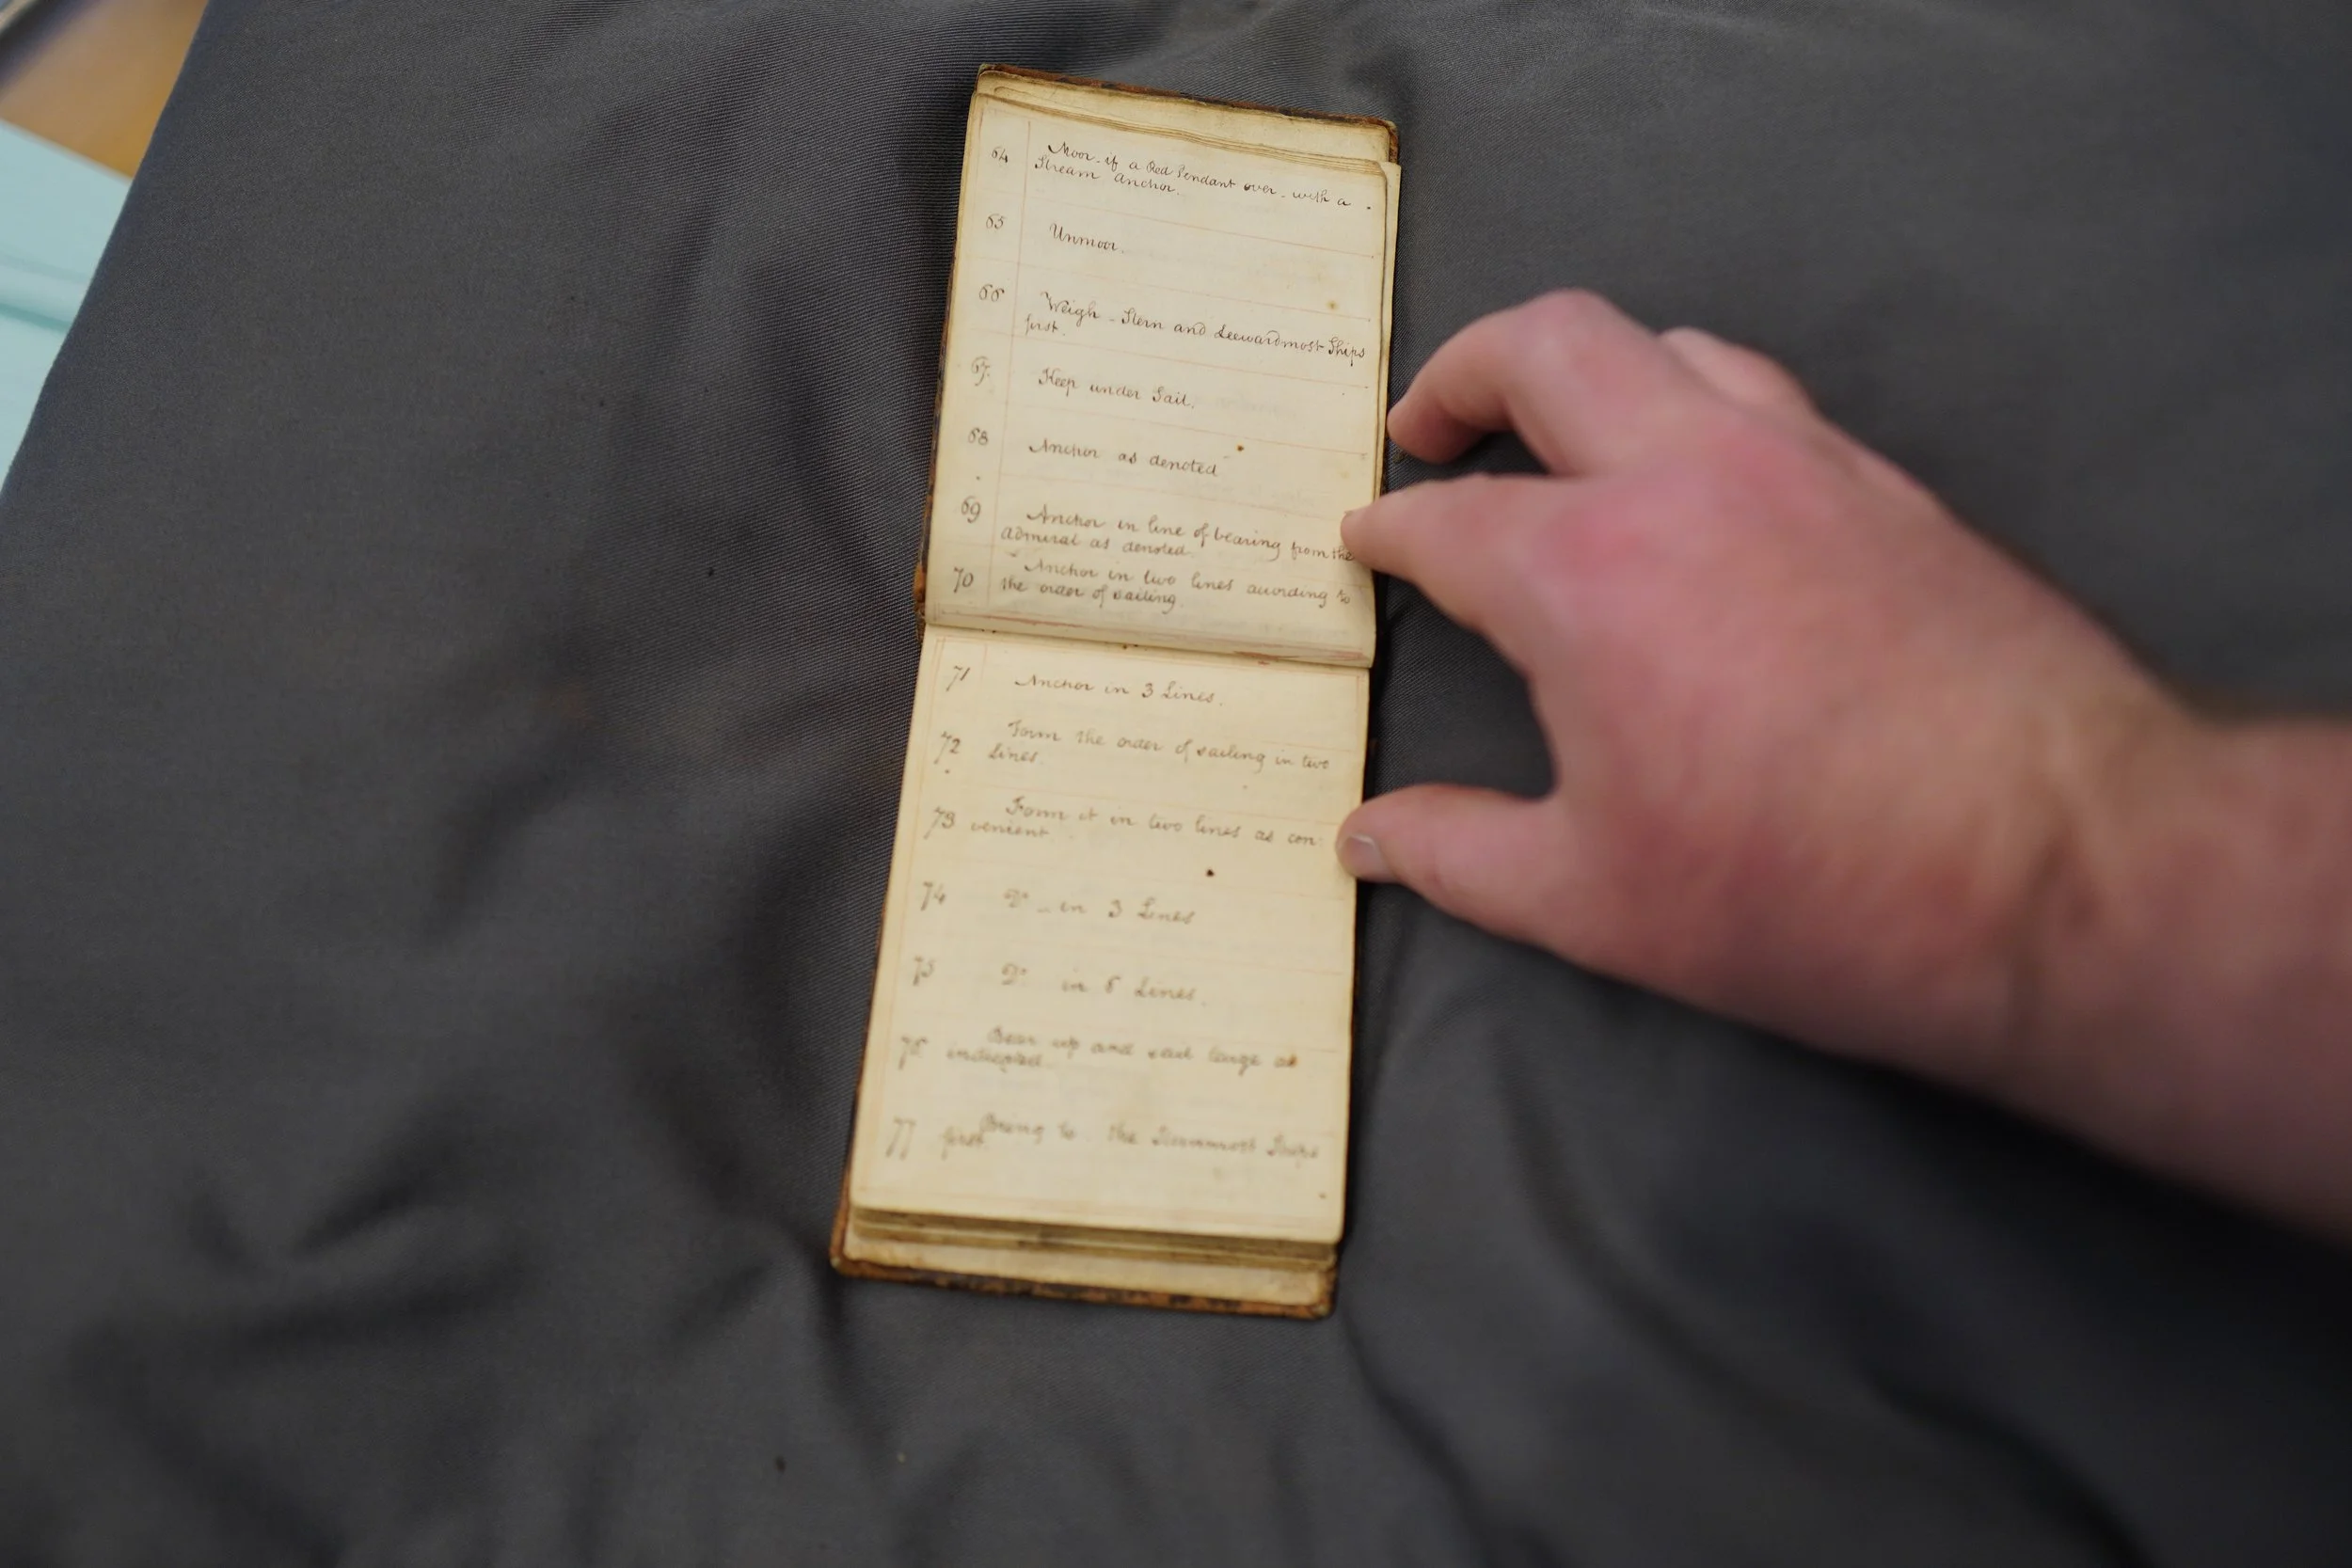 64 Moor - if a Red Pendant over - with a
Stream Anchor.
65 Unmoor.
66 Weigh - Stern and Leewardmost Ships
first.
67 Keep under Sail.
68 Anchor as denoted
69 Anchor in line of bearing from the
admiral as denoted.
70 Anchor in two lines acording to
the order of sailing.
71 Anchor in 3 Lines.
72 Form the order of sailing in two
Lines.
73 Form it in two lines as con:
venient.
74 Do - in 3 Lines
75 Do in 6 Lines.
76 Bear up and sail large as
indicated.
77 Bring to the Sternmost Ships
first